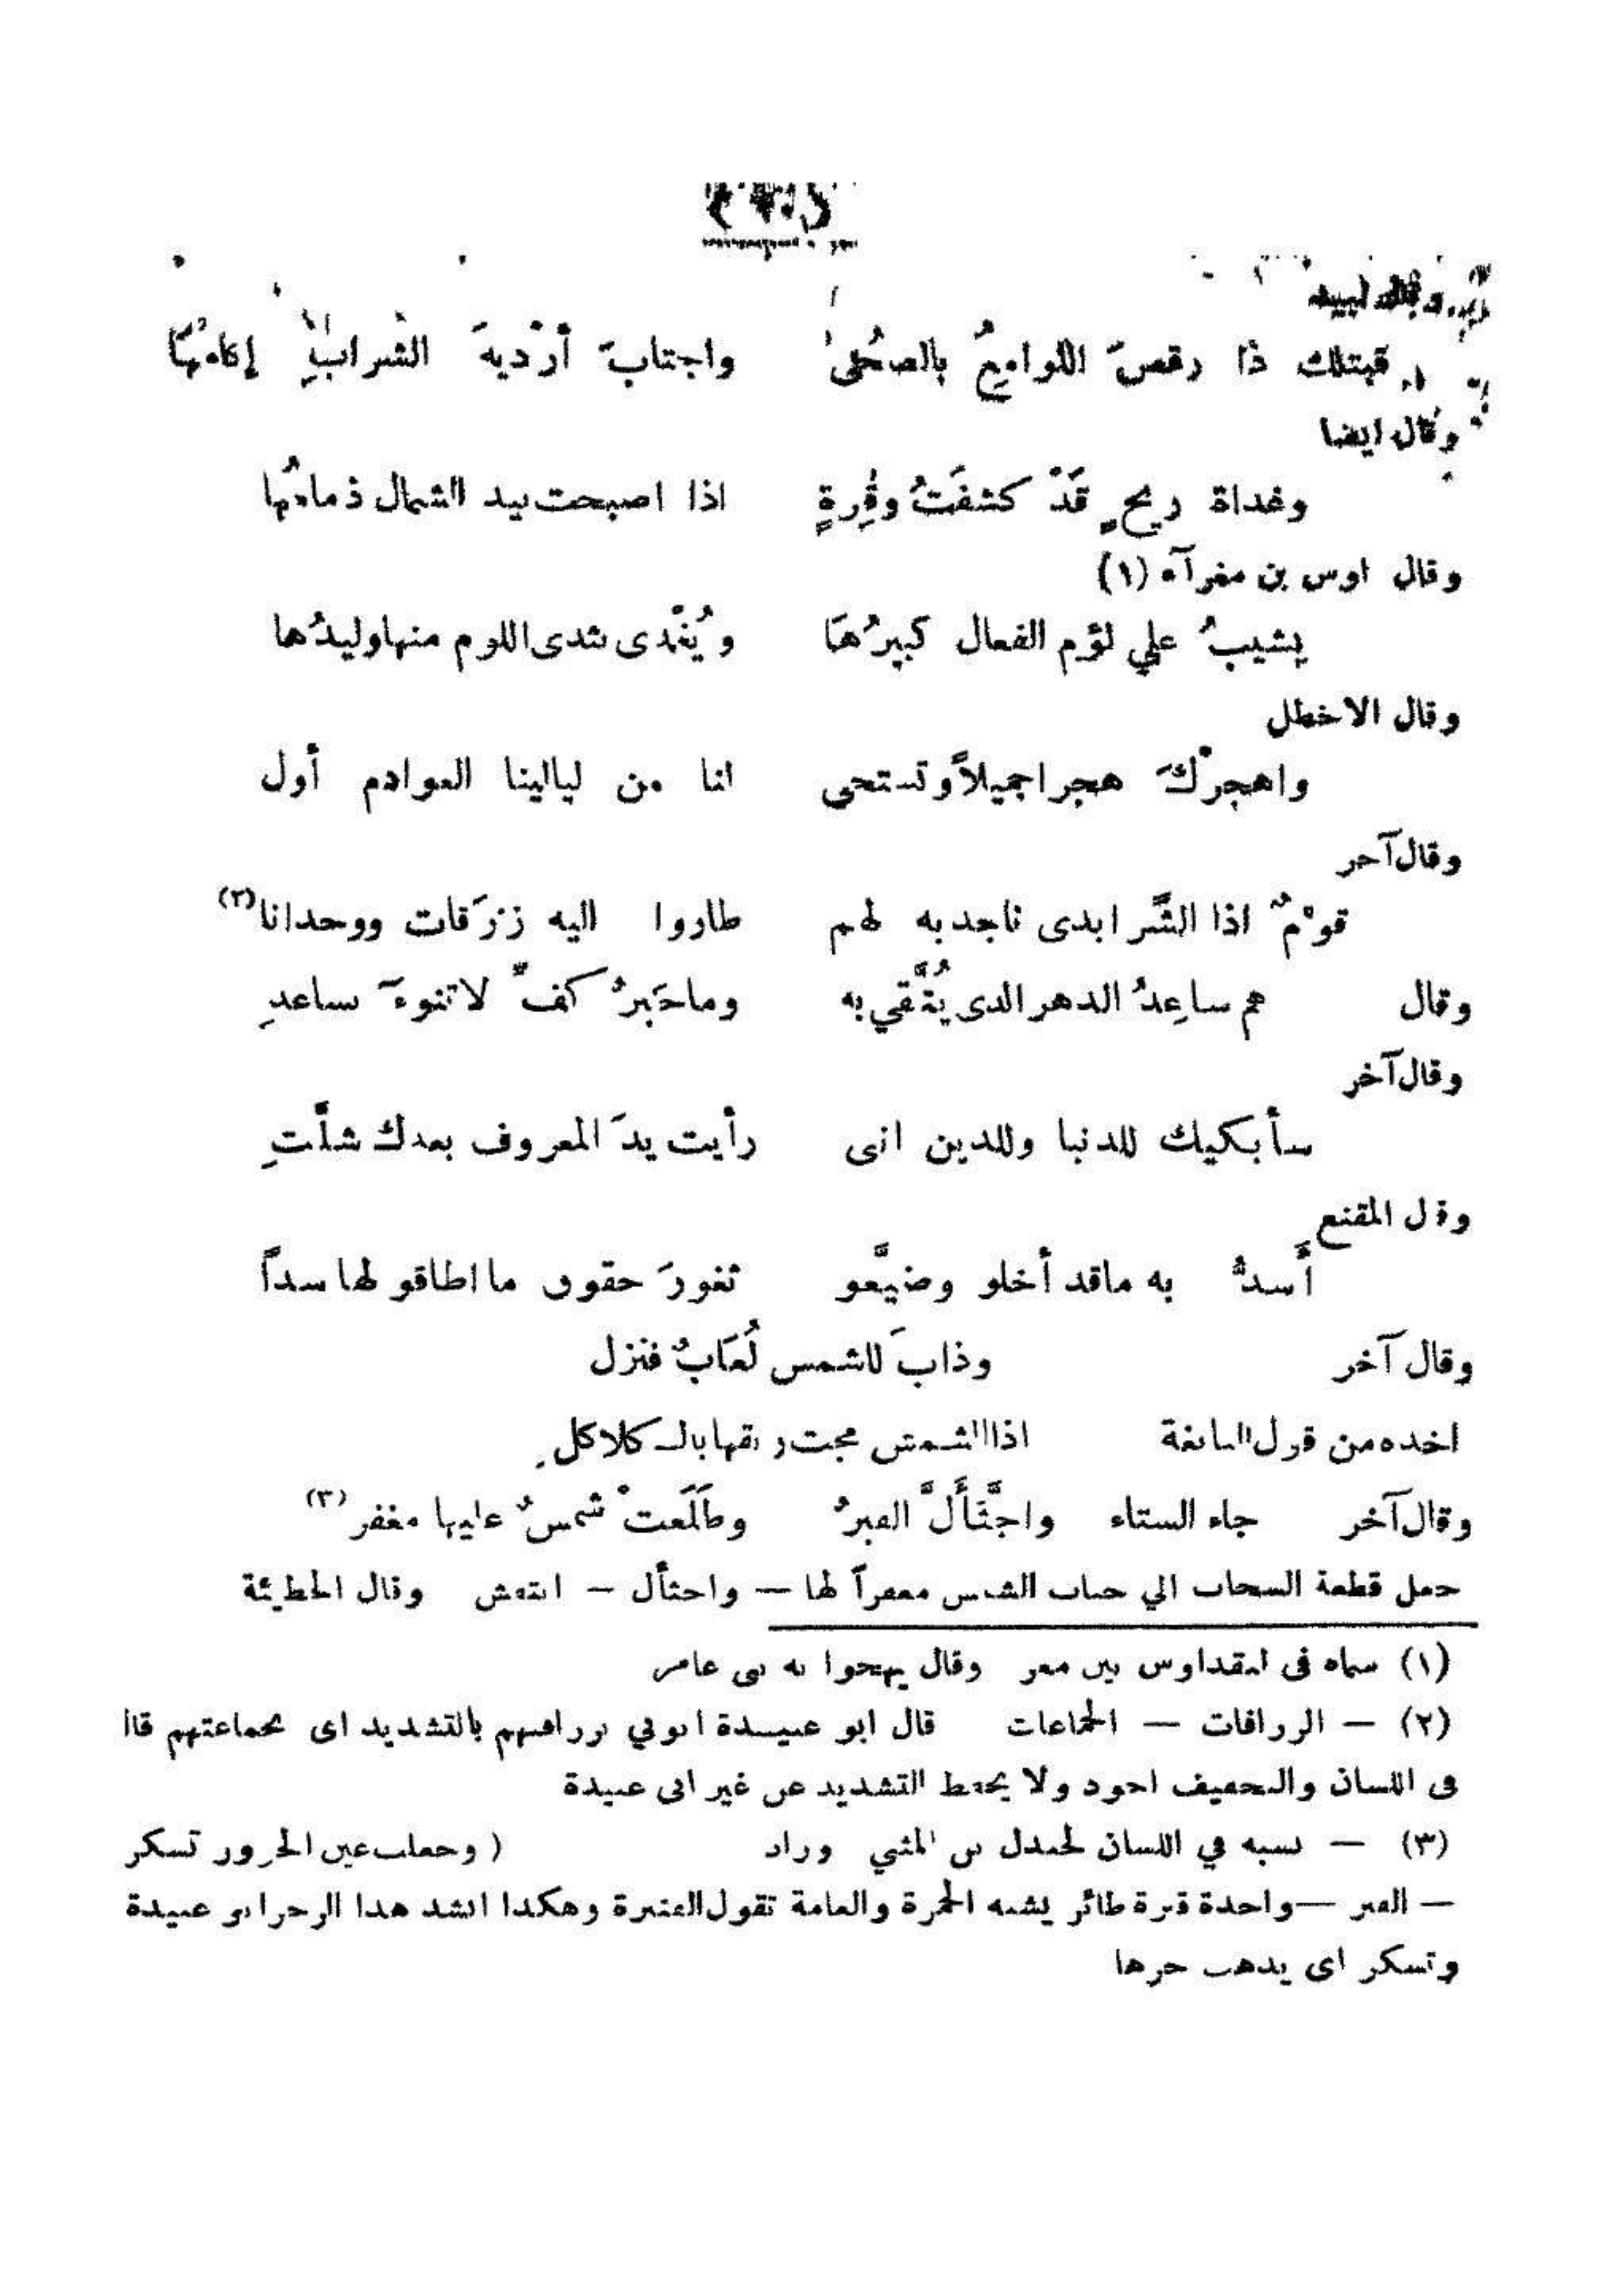 وقال لبيد
فبتلك اذا رقص اللوامعُ بالضُحى واجتابَ أرْديةَ السَرابِ إكامُها
وقال ايضا
وغداة ريحٍ قَدْ كشفتُ وقِرةٍ اذا اصبحت بيد الشمال زمامُها
وقال اوس بن مغرآء (١)
يشيبُ علي لؤم الفعال كبيرُهَا ويُغْذى بثدى اللوم منها وليدُها
وقال الاخطل
واهجرْكَ هجرا جميلاً وتستحى لنا من ليالينا العوادم أول
وقال آخر
قومٌ اذا الشَّر ابدى ناجديه لهم طاروا اليه زرَفات ووحدانا (٢)
وقال هم ساعِدُ الدهر الذى يُتَّقي به وما خَيرُ كفٍّ لا تنوءَ بساعدِ
وقال آخر
سأبكيك للدنيا وللدين انى رأيت يدَ المعروف بعدك شلَّتِ
وقال المقنع
أَسدُّ به ماقد أخلو وضيَّعو ثغورَ حقوق ما اطاقو لها سداً
وقال آخر وذابَ للشمس لُعَابٌ فنزل
اخده من قول النابغة اذا الشمس مجت ريقها بالكلاكل
وقال آخر جاء الشتاء واجْثَأَلَّ القبرُ وطَلَعتْ شمسٌ عليها مغفر (٣)
جعل قطعة السحاب الي جنب الشمس مغفراً لها — واجثأل — انتفش وقال الحطيئة
(١) سماه فى النقد اوس بن معر وقال يهجوا به بنى عامر
(٢) — الزرافات — الجماعات قال ابو عبيدة اتونى بزرافتهم بالتشديد اى بجماعتهم قال
فى اللسان والتخفيف اجود ولا يحفظ التشديد عن غير ابى عبيدة
(٣) — نسبه في اللسان لجندل بن المثني وزاد ( وجعلت عين الحرور تسكر
— القبر — واحدة قبرة طائر يشبه الحمرة والعامة تقول القنبرة وهكدا انشد هدا الرجز ابو عبيدة
وتسكر اى يذهب حرها